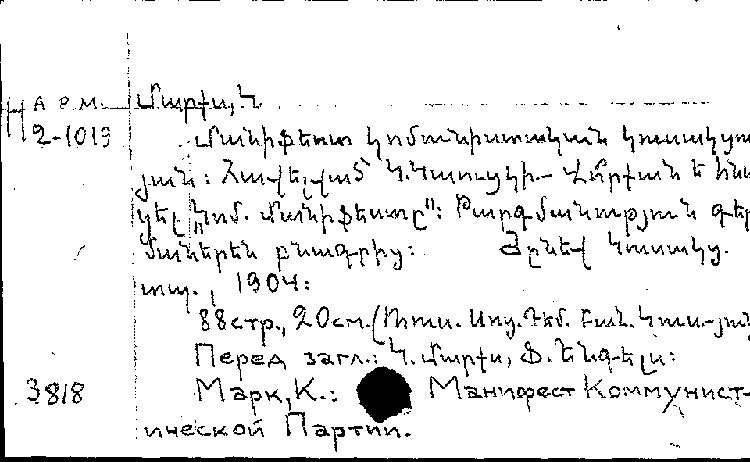 Н А р м. Մարքս, Կ
2-1013
Մանիֆեստ կոմունիստական կուսակցու
յան: Հավելված Կ. Կաուցկի-
ցել կոմ. մանիֆեստը": Թարգմանություն գեր
մաներեն բնագրից: Ժընեվ Կուսակց.
տպ., 1904:
88стр., 20см. (Ռուս. Սոց. Դեմ. Բան. Կուս-յան
Перед загл.: Կ. Մարքս, Ֆ. Ենգելս:
3818 Марк, К.: Манифест Коммунист-
ической Партии.